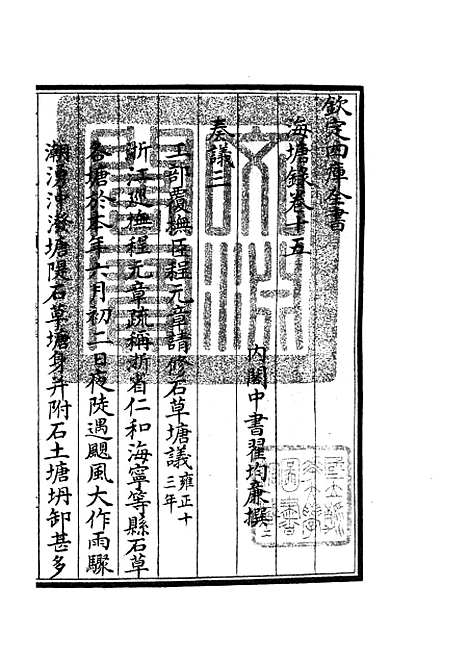 欽定四庫全書
海塘錄卷十五
內閣中書翟均廉撰
奏議三
工部覆撫臣程元章請修石草塘議雍正十三年
浙江巡撫程元章疏稱浙省仁和海寧等縣石草
各塘於本年六月初二日夜陡遇颶風大作雨驟
潮湧沖潑塘隄石草塘身并附石土塘坍卸甚多